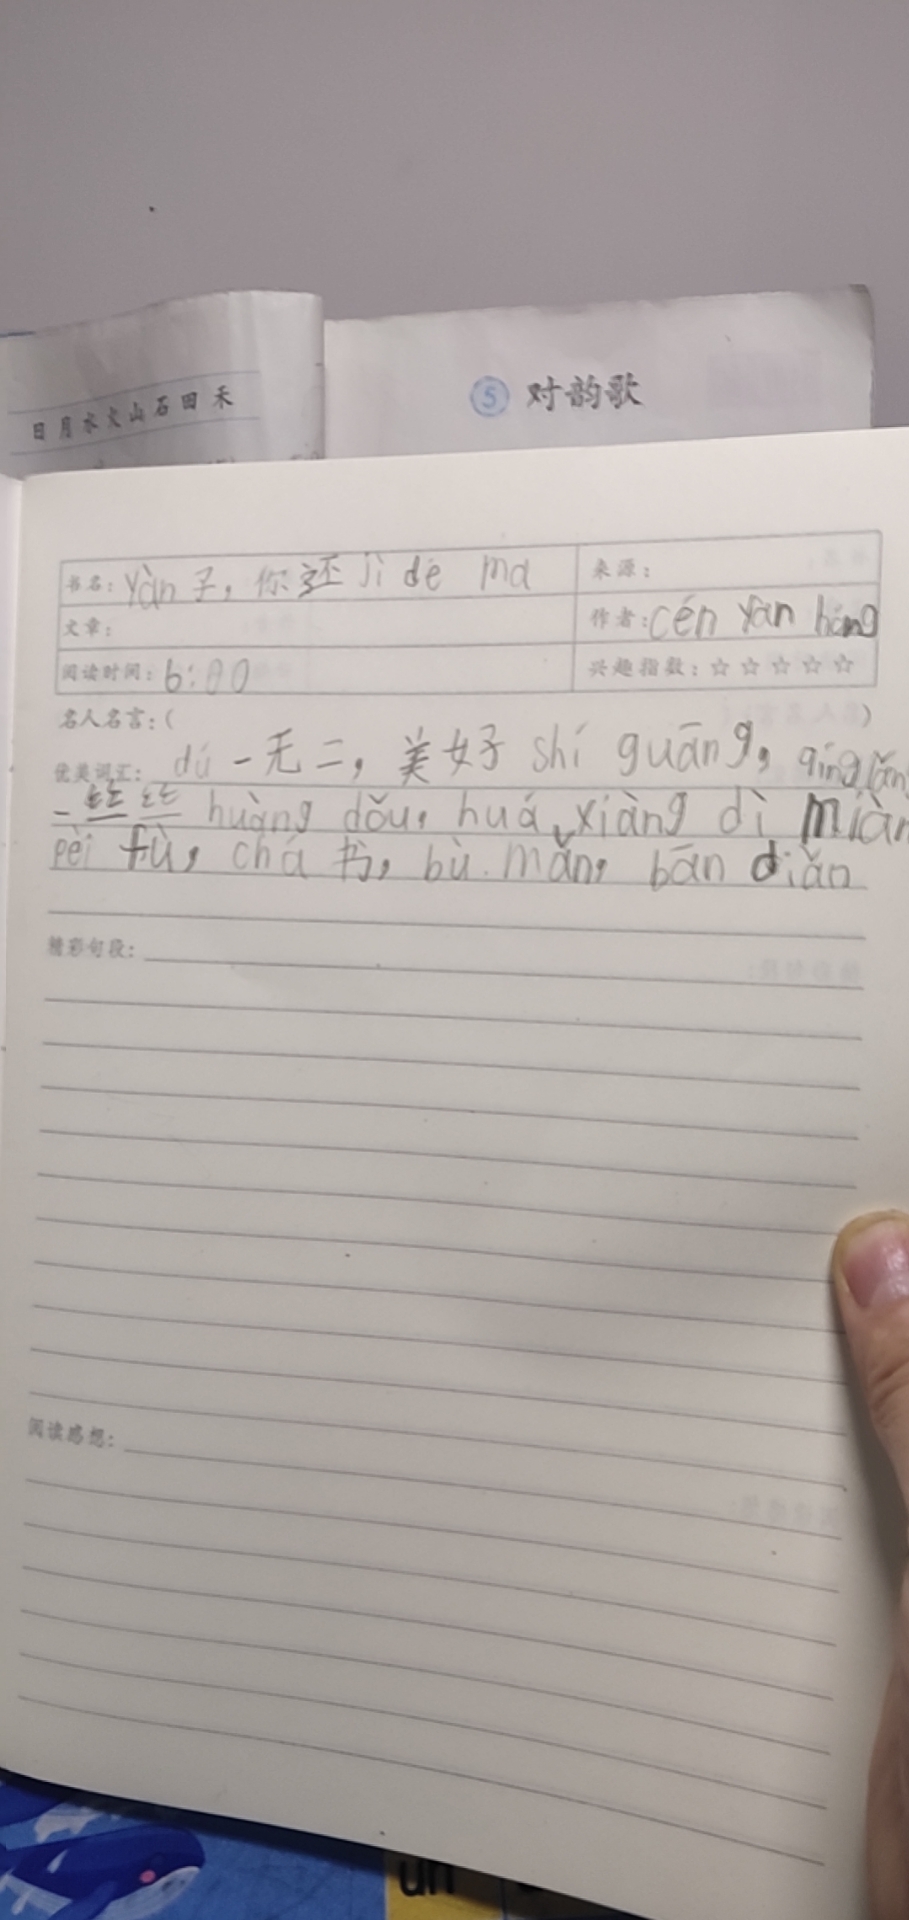 日月水火山石田禾
5 对韵歌
书名：yàn子，你还jì dé ma
来源：
文章：
作者：cén yàn háng
阅读时间：6:00
兴趣指数：☆☆☆☆☆
名人名言：（ ）
优美词汇：dú一无二，美好shí guāng，qíng lǎn
一丝丝 huàng dǒu，huá xiàng dì miàn
pèi fù，chá 书，bù mǎn，bān diǎn
精彩句段：
阅读感想：
un